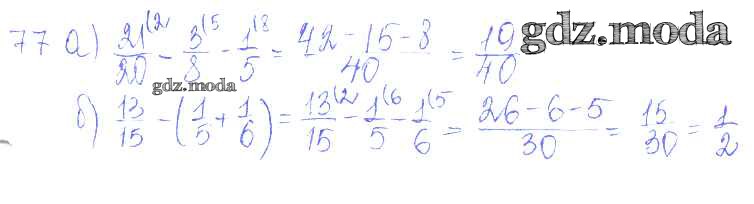 77 а) 21(2/20 - 3(5/8 - 1(8/5 = 42 - 15 - 8/40 = 19/40 gdz.moda
gdz.moda
б) 13/15 - (1/5 + 1/6) = 13(2/15 - 1(6/5 - 1(5/6 = 26 - 6 - 5/30 = 15/30 = 1/2